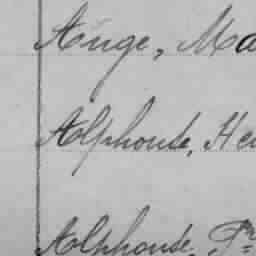 Ange, Ma
Alphonse, He
Alphonse, Pr